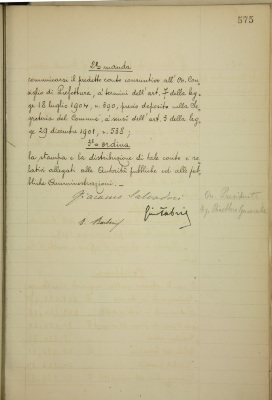 575
2º= manda
comunicarsi il predetto conto consuntivo all'On. Con-
siglio di Prefettura, a' termini dell'art. 7 della leg-
ge 18 luglio 1904, n. 390, previo deposito nella Se-
greteria del Comune, a' sensi dell'art. 3 della leg-
ge 29 dicembre 1901, n. 538;
3º= ordina
la stampa e la distribuzione di tale conto e re-
lativi allegati alle Autorità pubbliche ed alle pub-
bliche Amministrazioni. —
Giacomo Salvadori
On. Presidente
Sig. Direttore Generale